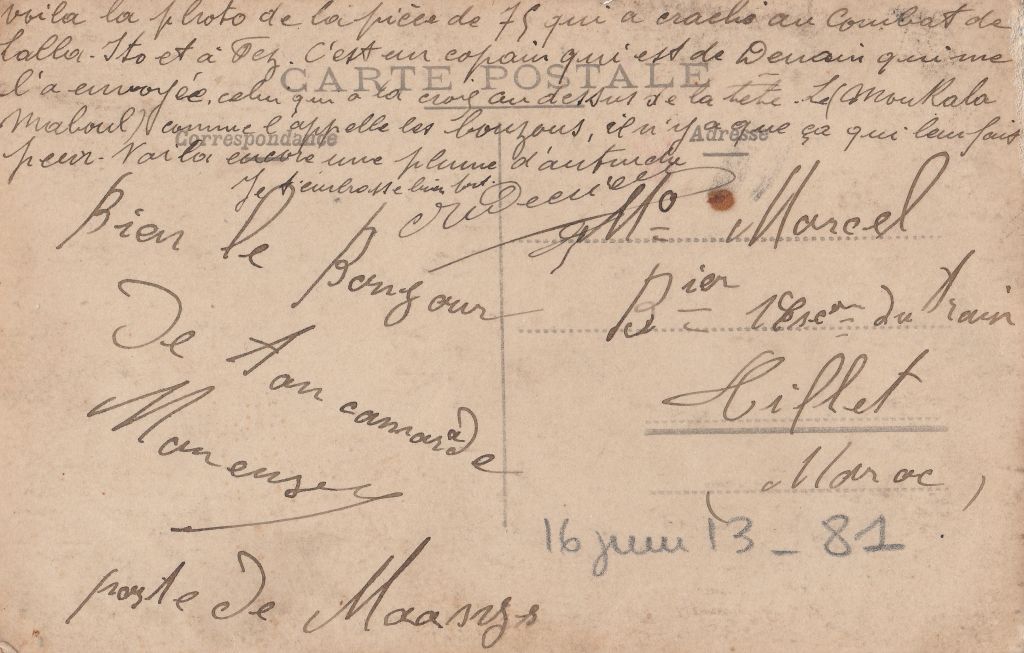 voila la photo de la pièce de 75 qui a craché au Combat de
Lalla-Ito et à Fez. C'est un copain qui est de Denain qui me
CARTE POSTALE
l'a envoyée, celui qui a la croix au dessus de la tête. Le (Moukala
Maboul) comme l'appelle les bouzous, il n'y a que ça qui leur fais
Correspondance
Adresse
peur. Voila encore une plume d'autruche
Je t'embrasse bien fort
Mo Marcel
Bien le Bonjour
Bier 1 Escon du Train
De ton camarade
Hillet
Maroc
16 juin 13 - 81
poste de